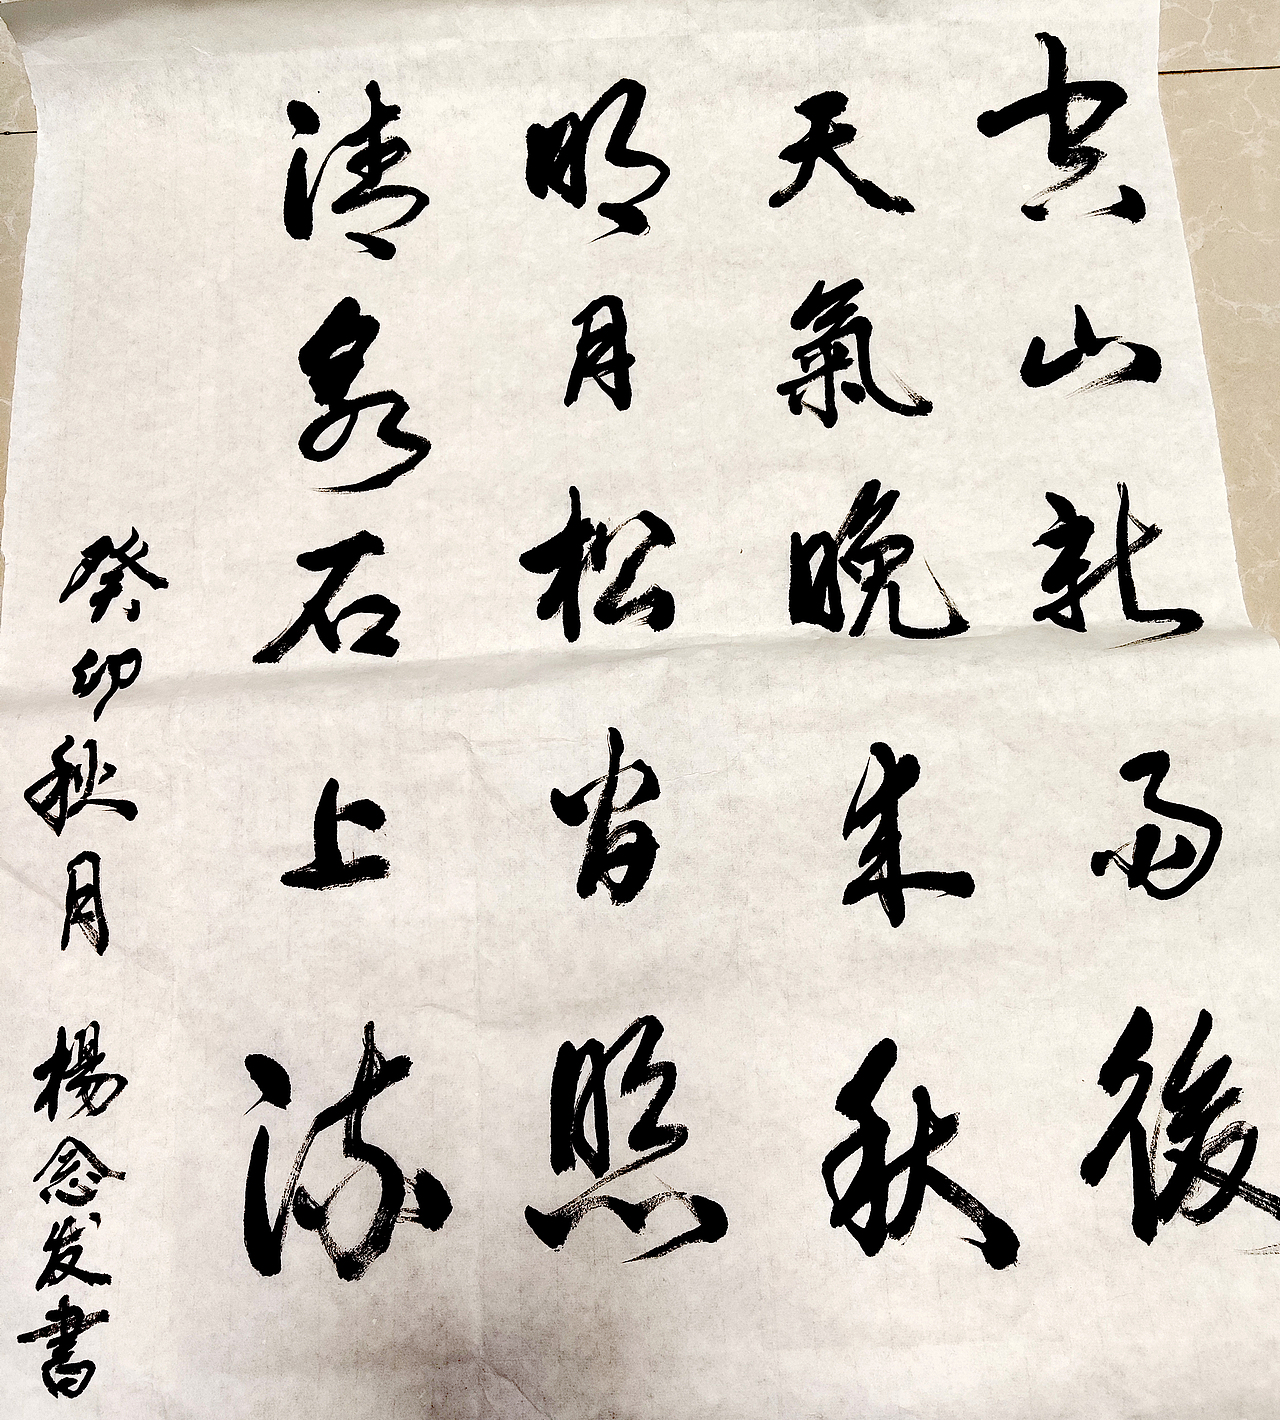 空山新雨後
天氣晚来秋
明月松间照
清泉石上流
癸卯秋月 楊念发書